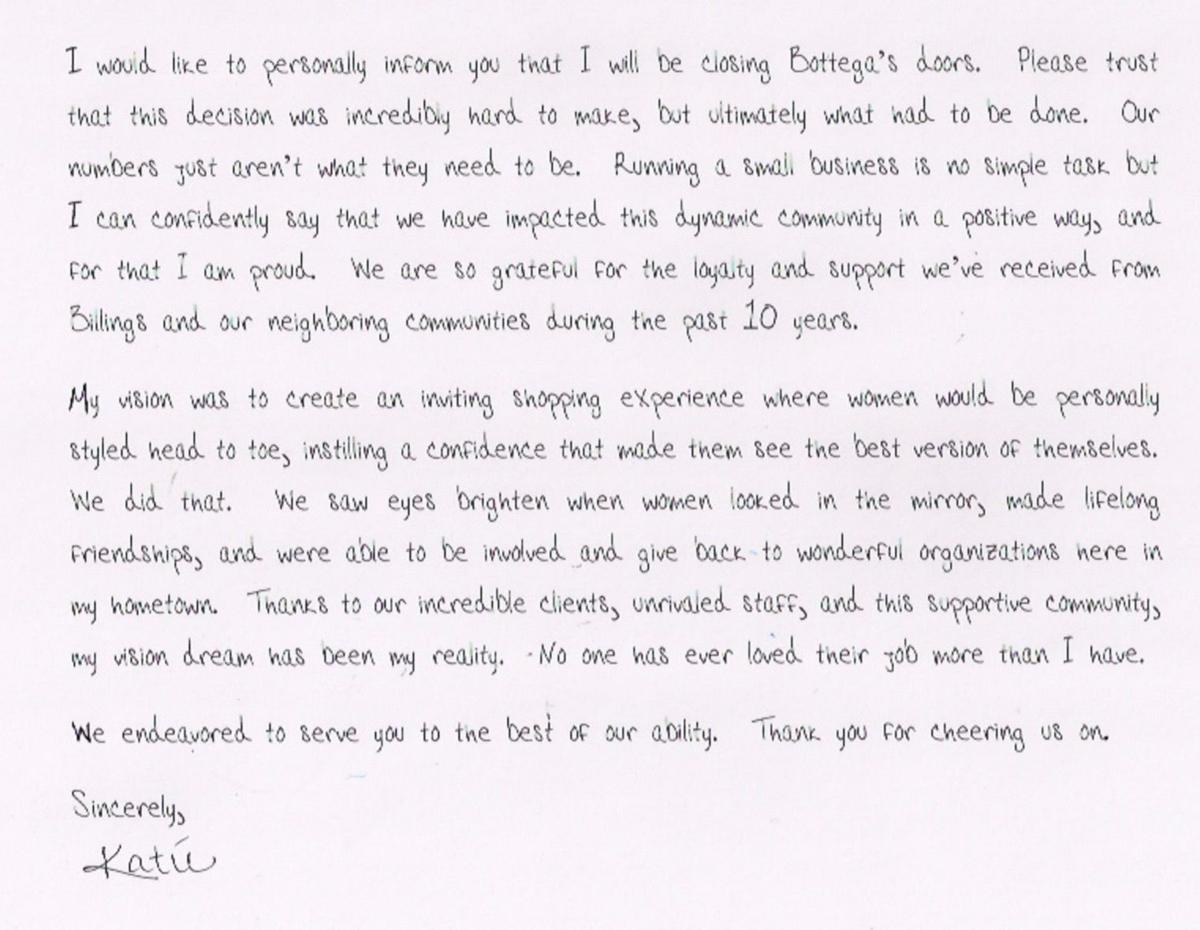 I would like to personally inform you that I will be closing Bottega's doors. Please trust
that this decision was incredibly hard to make, but ultimately what had to be done. Our
numbers just aren't what they need to be. Running a small business is no simple task but
I can confidently say that we have impacted this dynamic community in a positive way, and
for that I am proud. We are so grateful for the loyalty and support we've received from
Billings and our neighboring communities during the past 10 years.
My vision was to create an inviting shopping experience where women would be personally
styled head to toe, instilling a confidence that made them see the best version of themselves.
We did that. We saw eyes brighten when women looked in the mirror, made lifelong
friendships, and were able to be involved and give back to wonderful organizations here in
my hometown. Thanks to our incredible clients, unrivaled staff, and this supportive community,
my vision dream has been my reality. No one has ever loved their job more than I have.
We endeavored to serve you to the best of our ability. Thank you for cheering us on.
Sincerely,
Katie